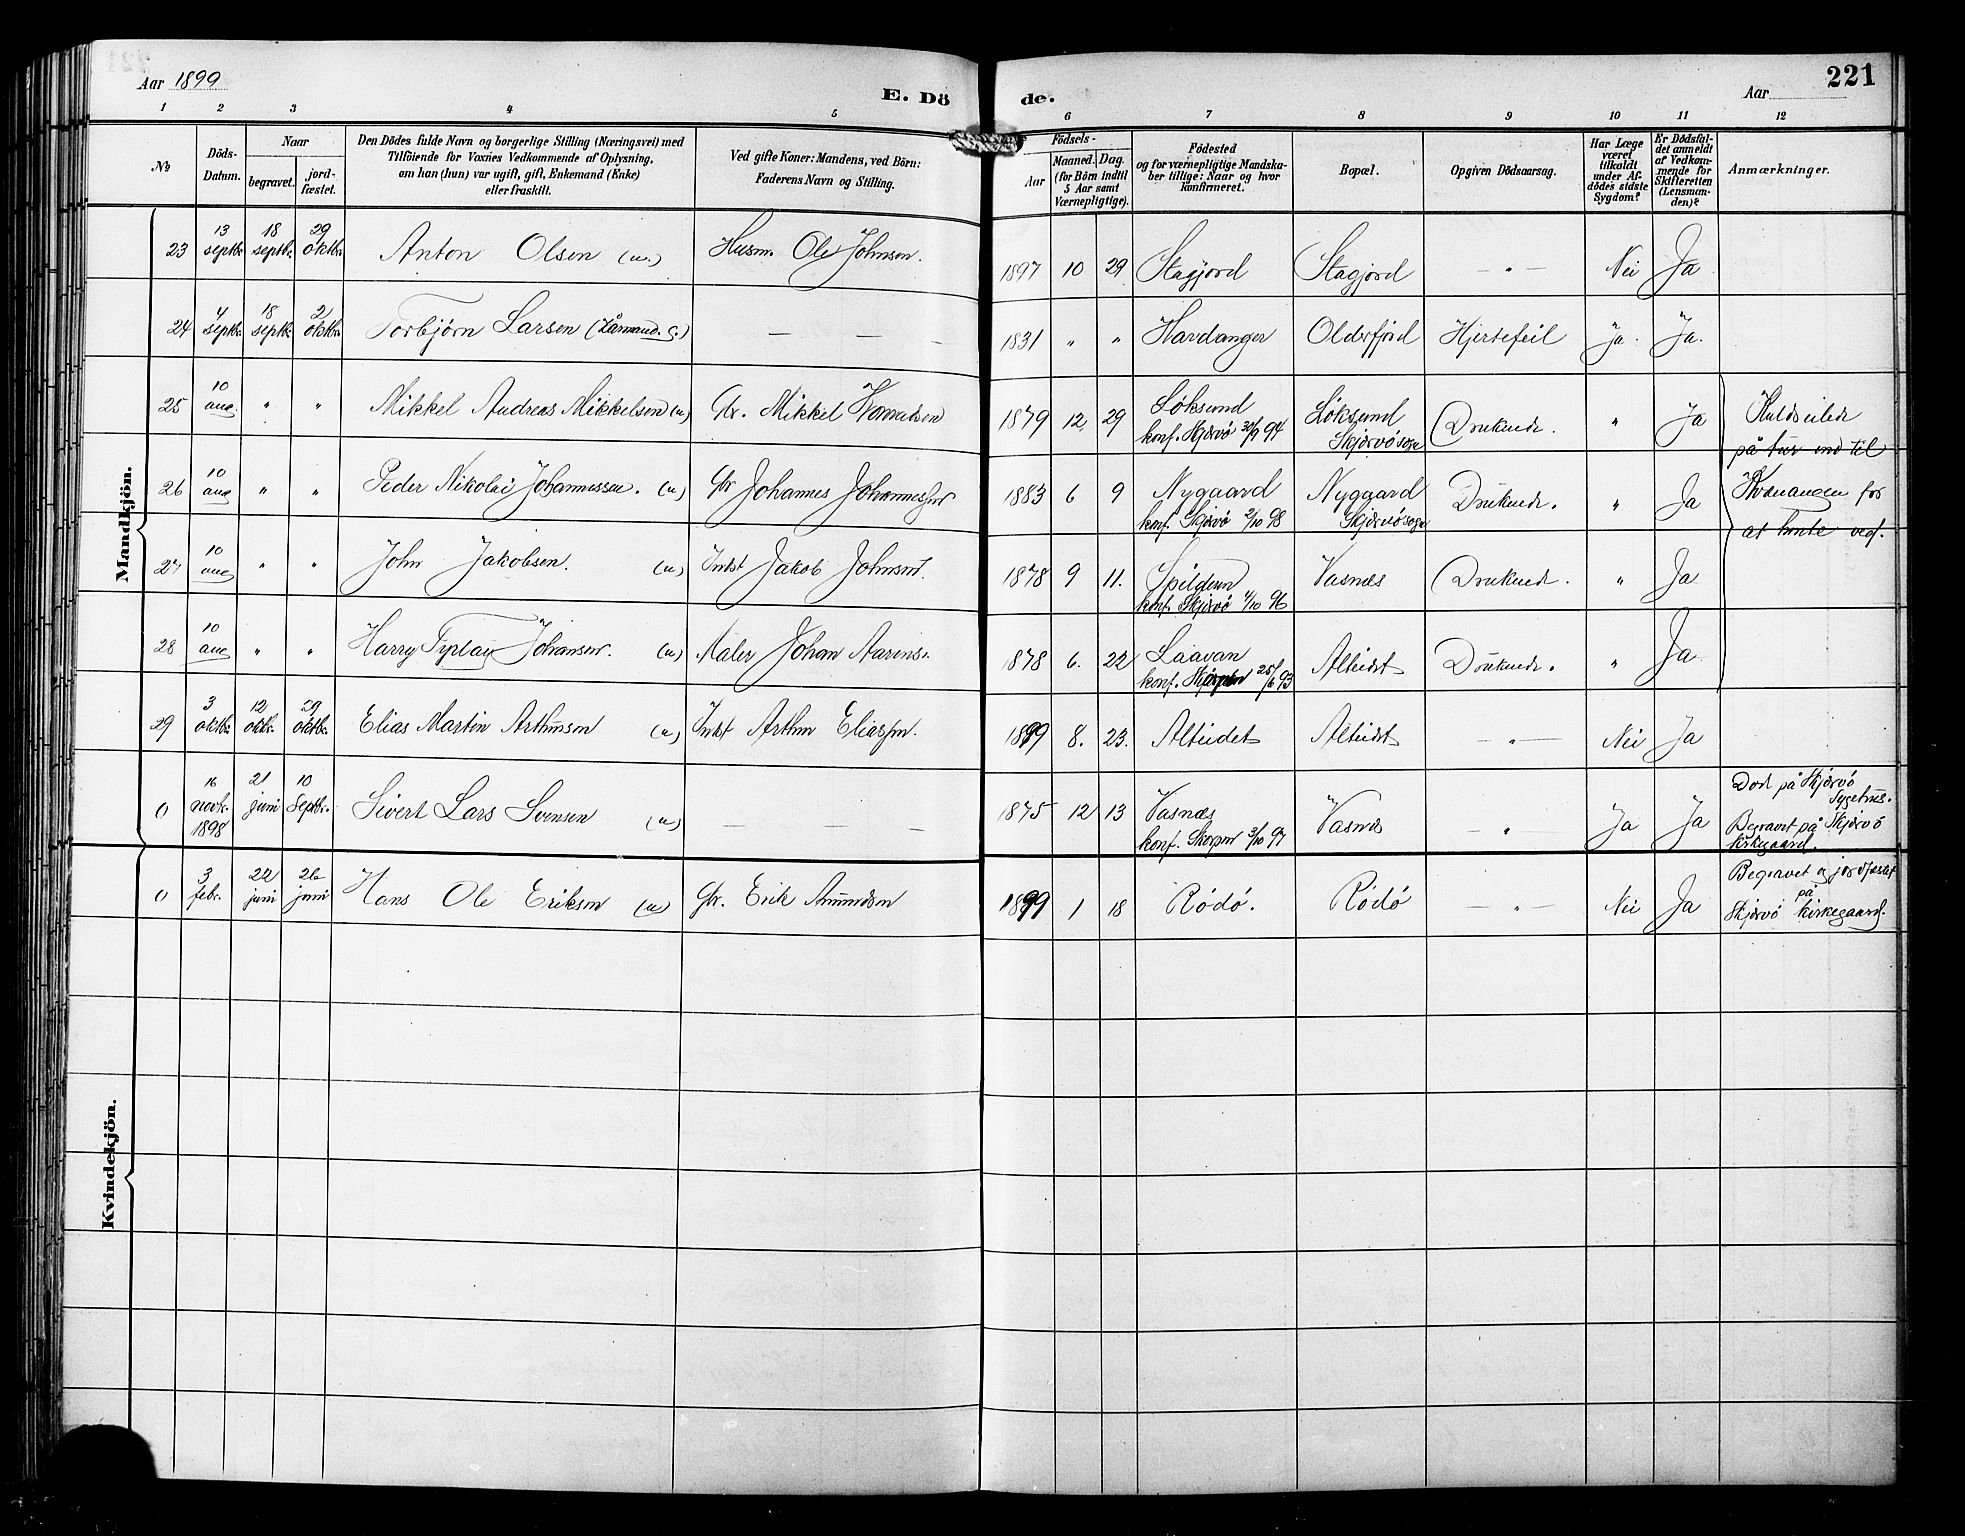 Aar 1899
E. Dö
de.
Aar
221
1 2 3 4 5 6 7 8 9 10 11 12
No
Döds-
Datum.
Naar
begravet.
jord-
fæstet.
Den Dödes fulde Navn og borgerlige Stilling (Næringsvei) med
Tilföiende for Voxnes Vedkommende af Oplysning,
om han (hun) var ugift, gift, Enkemand (Enke)
eller fraskilt.
Ved gifte Koner: Mandens, ved Börn:
Faderens Navn og Stilling.
Födsels-
Aar
Maaned. Dag.
(for Börn indtil
5 Aar samt
Værnepligtige).
Födested
og for værnepligtige Mandska-
ber tillige: Naar og hvor
konfirmeret.
Bopæl.
Opgiven Dödsaarsag.
Har Læge
været
tilkaldt
under Af-
dödes sidste
Sygdom?
Er Dödsfal-
det anmeldt
af Vedkom-
mende for
Skifteretten
(Lensman-
den)?
Anmærkninger.
Mandkjön.
23 13 septbr. 18 septbr. 29 oktbr. Anton Olsen (u.) Husm. Ole Johnsen. 1897 10 29 Stagjord Stagjord — " — Nei Ja
24 4 septbr. 18 septbr. 2 oktbr. Torbjørn Larsen — — — 1831 " " Hardanger Olderfjord Hjertefeil Ja. Ja.
25 10 aug. " " Mikkel Andreas Mikkelsen (u) Gbr. Mikkel 1879 12 29 Løksund Løksund Druknede. " Ja Kuldseilede
konf. Skjervø 30/9 94 Skjervø sogn
på tur ind til
26 10 aug " " Peder Nikolai Johannessen. (u) Gbr Johannes Johannessen 1883 6 9 Nygaard Nygaard Druknede. " Ja Kvænangen for
konf. Skjervø 2/10 98 Skjervø sogn
at hente ved.
27 10 aug " " John Jakobsen. (u) Indst Jakob Johnsen. 1878 9 11. Spildern Vasnæs Druknede. " Ja
konf. Skjervø 4/10 96
28 10 aug " " Harry Johansen. (u) Maler Johan 1878 6. 22 Laavan Alteidet Druknede. " Ja
konf. 25/6 93
29 3 oktbr. 12 oktbr. 29 oktbr. Elias Martin Arthursen (u) Indst Arthur Eliassen. 1899 8. 23. Alteidet Alteidet — " — Nei Ja
0 16 novbr. 1898 21 juni 10 Septbr. Sivert Lars Svensen (u) — — — 1875 12 13 Vasnæs Vasnæs — " — Ja Ja Død på Skjervø
Sygehus.
konf. Skorpen 3/10 97
Begravet på Skjervø
kirkegaard.
Kvindekjön.
0 3 febr. 22 juni 26 juni Hans Ole Eriksen (u) Gbr. Erik Amundsen 1899 1 18 Rödö. Rödö — " — Nei Ja Begravet og jordfæstet
på
Skjervø kirkegaard.